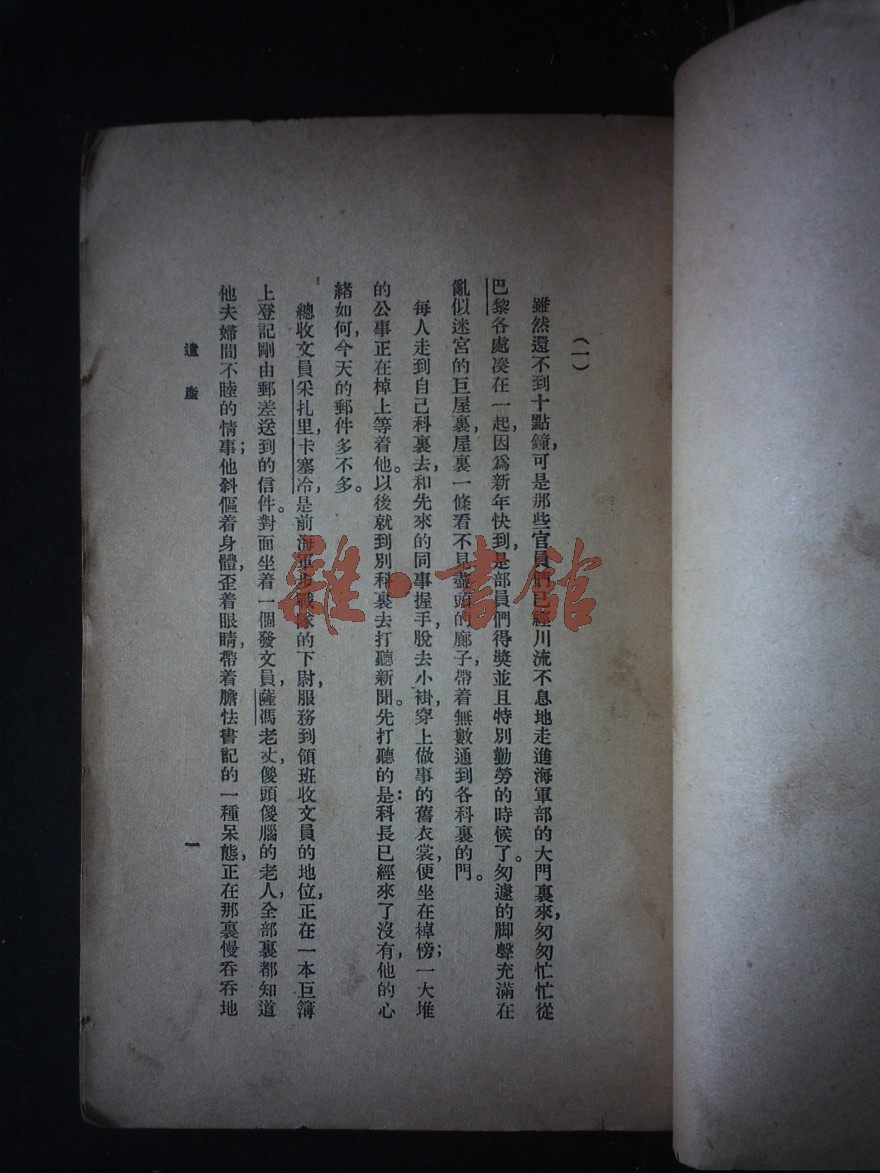 （一）
雖然還不到十點鐘，可是那些官員們已經川流不息地走進海軍部的大門裏來，匆匆忙忙從
巴黎各處湊在一起，因爲新年快到，是部員們得獎並且特別勤勞的時候了。匆遽的脚聲充滿在
亂似迷宮的巨屋裏，屋裏一條看不見盡頭的廊子，帶着無數通到各科裏的門。
每人走到自己科裏去，和先來的同事握手，脫去小褂，穿上做事的舊衣裳，便坐在棹傍；一大堆
的公事正在棹上等着他。以後就到別科裏去打聽新聞。先打聽的是：科長已經來了沒有，他的心
緒如何，今天的郵件多不多。
總收文員采扎里，卡塞冷，是前海軍步戰隊的下尉，服務到領班收文員的地位，正在一本巨簿
上登記剛由郵差送到的信件。對面坐着一個發文員，薩馮老丈，傻頭傻腦的老人，全部裏都知道
他夫婦間不睦的情事；他斜傴着身體，歪着眼睛，帶着膽怯書記的一種呆態，正在那裏慢吞吞地
遺產
一
雜·書館